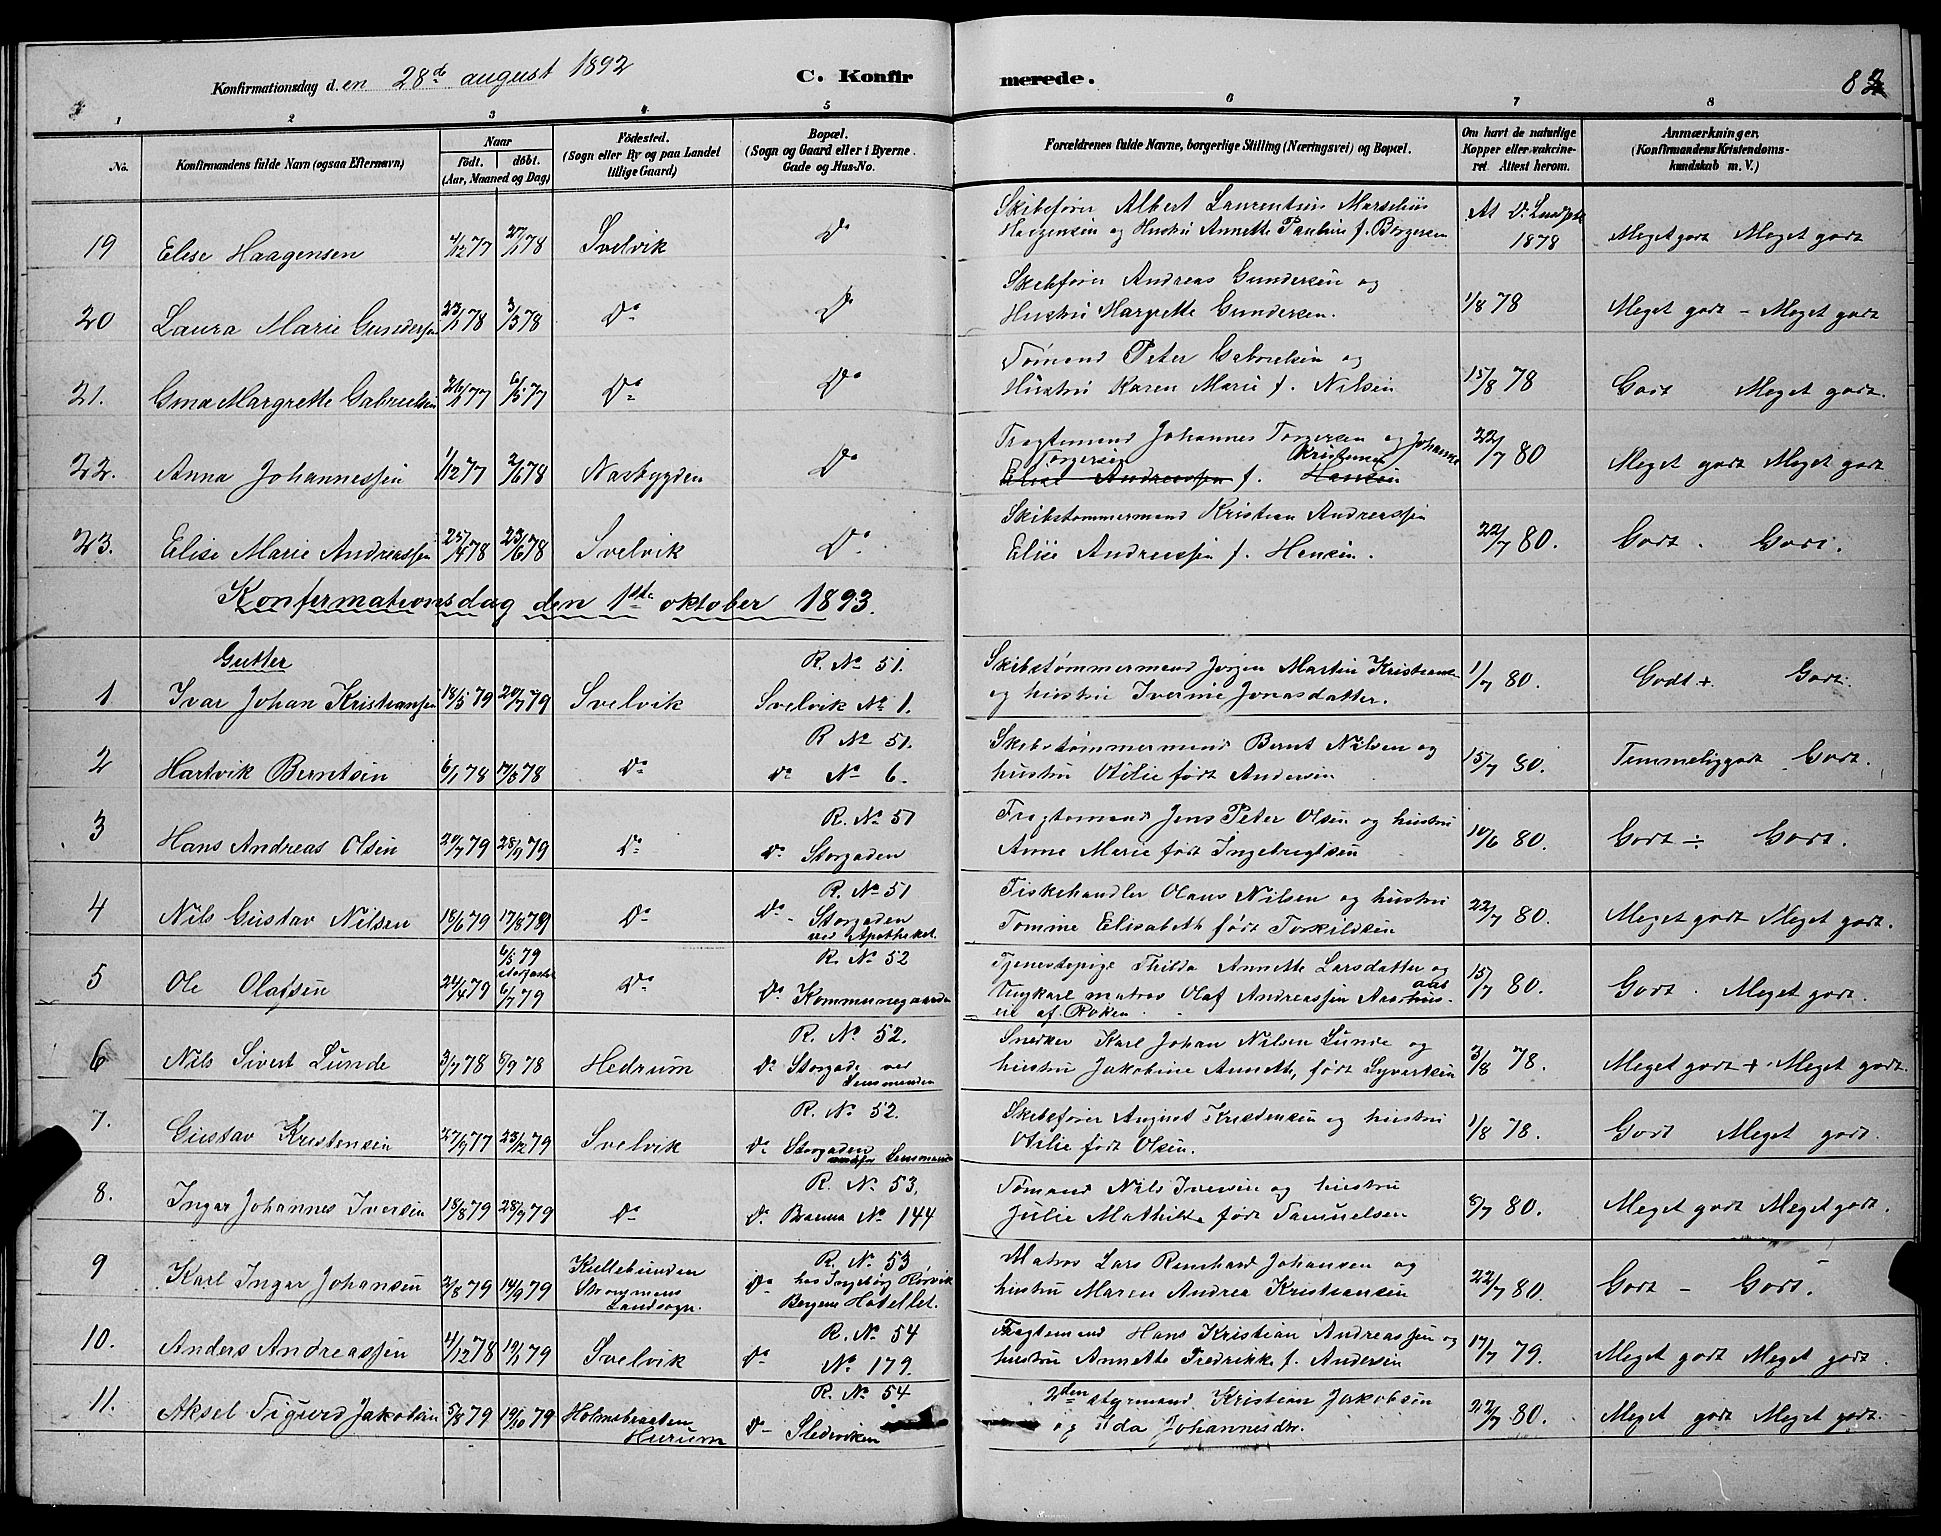 Konfirmationsdag d. en 28de august 1892
C. Konfirmerede.
82
1 2 3 4 5 6 7 8
No.
Konfirmandens fulde Navn (ogsaa Efternavn)
Naar
født. døbt.
(Aar, Maaned og Dag)
Fødested.
(Sogn eller By og paa Landet
tillige Gaard)
Bopæl.
(Sogn og Gaard eller i Byerne
Gade og Hus-No.
Forældrenes fulde Navne, borgerlige Stilling (Næringsvei) og Bopæl.
Om havt de naturlige
Kopper eller vakcine-
ret Attest herom.
Anmærkninger.
(Konfirmandens Kristendoms-
kundskab m. V.)
19 Elise Haagensen 4/12 77 27/1 78 Svelvik Do
Skibsfører Albert Laurentius Marselius
Haagensen og Hustru Annette Pauline f. Børgersen
At D. 1878 Meget godt Meget godt
20 Laura Marie Gundersen 23/1 78 3/3 78 Do Do
Skibsfører Andreas Gundersen og
Hustru Margrette Gundersen.
1/8 78 Meget godt - Meget godt
21. Gina Margrethe Gabrielsen 77 6/5 77 Do Do
Sømand Peter Gabrielsen og
Hustru Karen Marie f. Nilsen
15/8 78 Godt Meget godt.
22. Anna Johannessen 1/12 77 2/6 78 Nasbygden Do
Fragtemand Johannes Torgersen og Johanne
Torgersen Kristensen
Elise Andreassen f. Hansen
22/7 80 Meget godt Meget godt
23. Elise Marie Andreassen 25/4 78 23/6 78 Svelvik Do
Skibstømmermand Kristian Andreassen
Elise Andreassen f. Hansen.
22/7 80. Godt. Godt.
Konfirmationsdag den 1ste oktober 1893.
Gutter
1 Ivar Johan Kristiansen 18/5 79 20/7 79 Svelvik
R. No 51.
Svelvik No 1.
Skibstømmermand Jørgen Martin Kristiansen
og hustru Iverine Jonasdatter.
1/7 80. Godt + Godt.
2 Hartvik Berntsen 6/1 78 17/3 78 Do
R No 51.
Do No 6.
Skibstømmermand Bernt Nilsen og
hustru Otilie født Andersen
15/7 80. Temmelig godt Godt.
3 Hans Andreas Olsen 20/7 79 28/9 79 Do
R. No 51
Do Storgaden
Fragtemand Jens Peter Olsen og hustru
Anne Marie født Ingebregtsen
10/6 80. Godt ÷ Godt.
4 Nils Gustav Nilsen 18/6 79 17/8 79 Do
R. No 51
Do Storgaden
ved Apotheket.
Fiskehandler Olaus Nilsen og hustru
Tomine Elisabeth født Torkildsen
22/7 80. Meget godt Meget godt.
5 Ole Olafsen 24/4 79 6/5 79 6/7 79 Do
R. No 52
Do Kommunegaarden
Tjenestepige Thilda Annette Larsdatter og
Ungkarl matros Olaf Andreassen Aarhus-
en af Røken.
15/7 80. Godt. Meget godt.
6 Nils Sivert Lunde 3/7 78 78 Hedrum
R. No 52.
Do Storgade ved
Lensmanden
Snedker Karl Johan Nilsen Lunde og
hustru Jakobine Annette, født Syvertsen
3/8 78. Meget godt + Meget godt.
7. Gustav Kristensen 27/9 77 23/12 79 Svelvik
R. No 52.
Do Storgaden
Lensmanden
Skibsfører August Kristensen og hustru
Otilie født Olsen.
1/8 78. Godt Meget godt.
8. Ingar Johannes Iversen 18/8 79 28/9 79 Do
R. No 53.
Do Baanna No 144
Sømand Nils Iversen og hustru
Julie Mathilde født Samuelsen
8/7 80. Meget godt Meget godt.
9 Karl Ingar Johansen 2/8 79 14/9 79
Kullebunden
Strømmens
Landsogn.
R. No 53
Do hos Ingeborg Rørvik
Bergene Hotellet.
Matros Lars Reinhard Johansen og
hustru Maren Andrea Kristiansen
22/7 80. Godt - Godt.
10. Anders Andreassen 4/12 78 19/1 79 Svelvik
R. No 54
Do No 179.
Fragtemand Hans Kristian Andreassen og
hustru Annette Fredrikke f. Andersen
17/7 79. Meget godt Meget godt.
11. Aksel Sigurd Jakobsen 5/8 79 19/10 79
Holmsbraaten
Hurum
R. No 54
Do Sledeviken
2den styrmand Kristian Jakobsen
og Ida Johannesdtr.
22/7 80. Meget godt Meget godt.